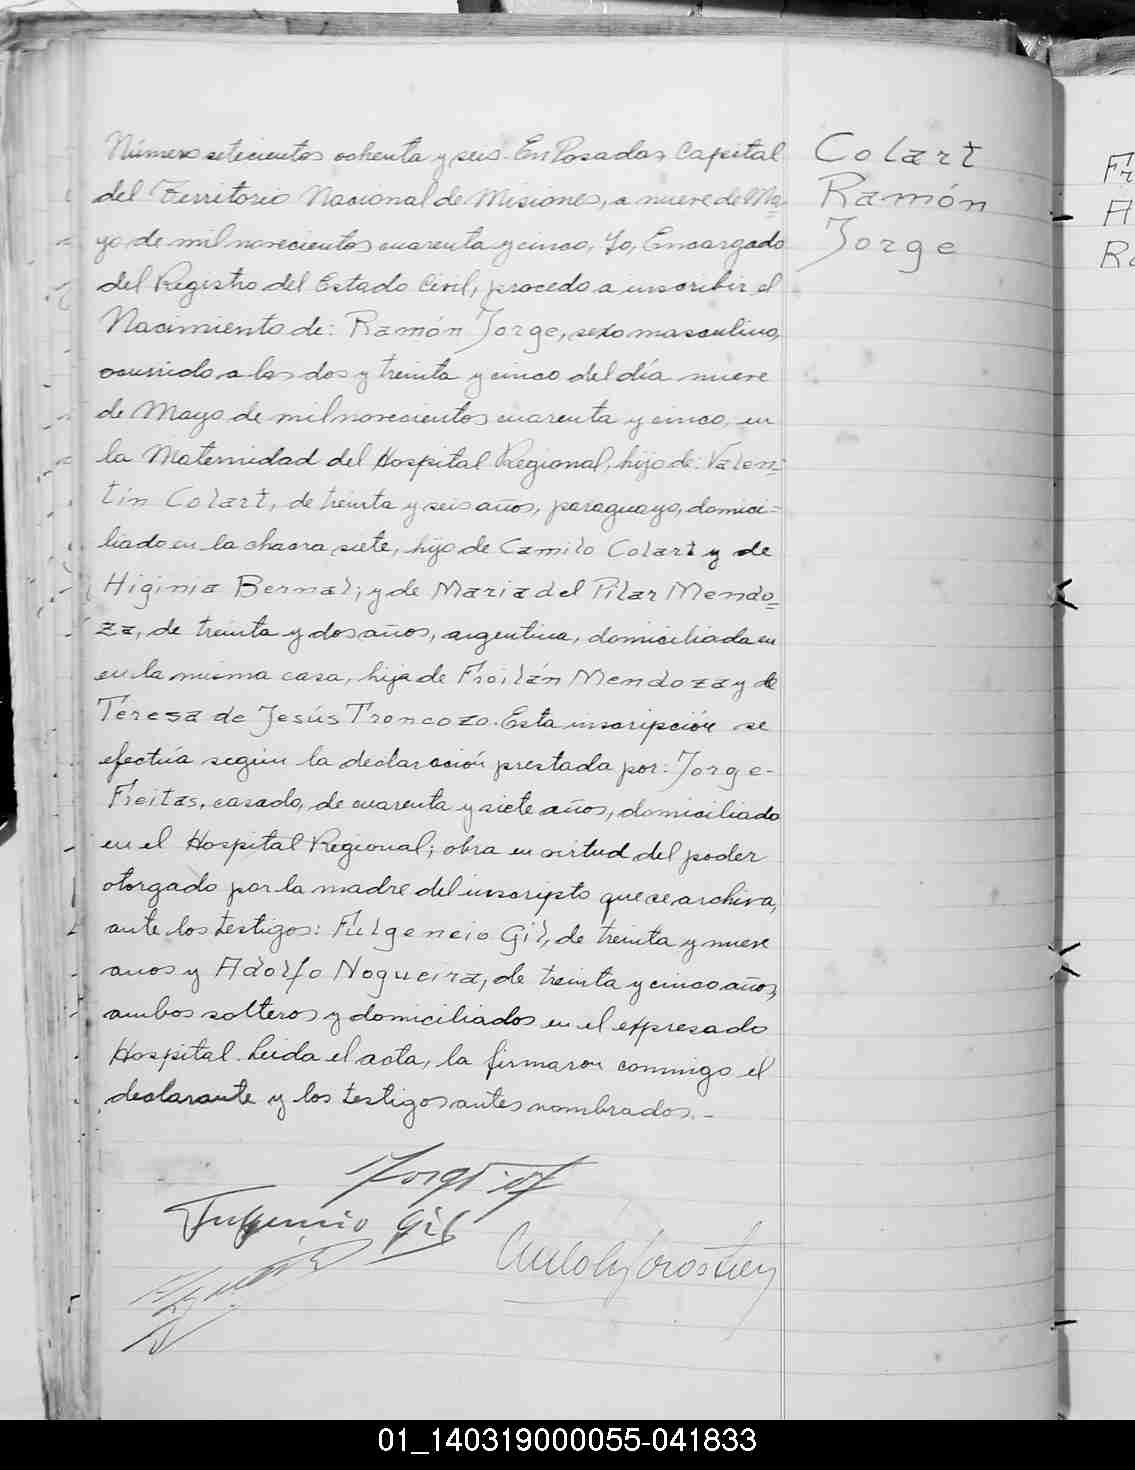 Número setecientos ochenta y seis. En Posadas, Capital
del Territorio Nacional de Misiones, a nueve de Ma=
yo de mil novecientos cuarenta y cinco, Yo, Encargado
del Registro del Estado Civil, procedo a inscribir el
Nacimiento de: Ramón Jorge, sexo masculino,
ocurrido a las dos y treinta y cinco del día nueve
de Mayo de mil novecientos cuarenta y cinco, en
la Maternidad del Hospital Regional, hijo de: Valen=
tín Colart, de treinta y seis años, paraguayo, domici=
liado en la chacra siete, hijo de Camilo Colart y de
Higinia Bernal; y de María del Pilar Mendo=
za, de treinta y dos años, argentina, domiciliada en
en la misma casa, hija de Froilán Mendoza y de
Teresa de Jesús Troncozo. Esta inscripción se
efectúa según la declaración prestada por: Jorge-
Freitas, casado, de cuarenta y siete años, domiciliado
en el Hospital Regional; obra en virtud del poder
otorgado por la madre del inscripto que se archiva,
ante los testigos: Fulgencio Gil, de treinta y nueve
anos y Adolfo Nogueira, de treinta y cinco años,
ambos solteros y domiciliados en el expresado
Hospital. Leida el acta, la firmaron conmigo el
declarante y los testigos antes nombrados.-
Colart
Ramón
Jorge
Fulgencio Gil
Fr
A
Ra
01_140319000055-041833